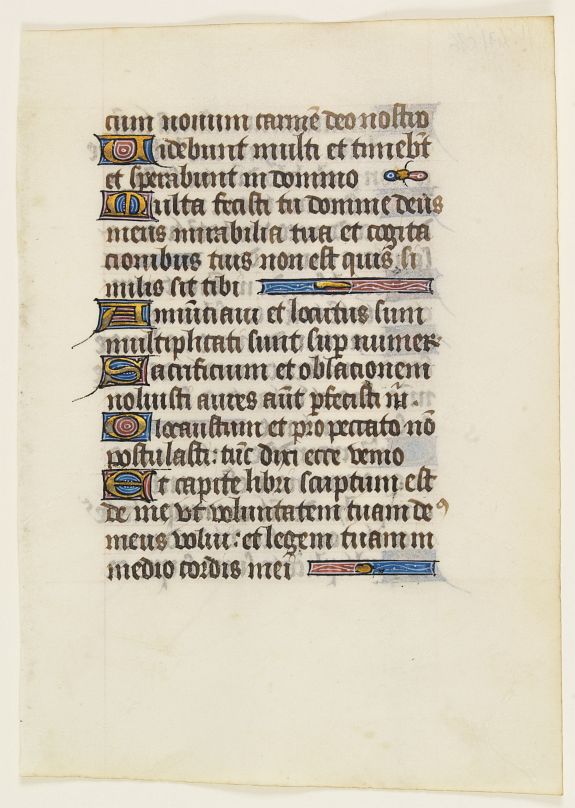 cum nouum carmē deo nostro
Uidebunt multi et timebūt
et sperabunt in domino
Multa fecisti tu domine deus
meus mirabilia tua et cogita
cionibus tuis non est quis si
milis sit tibi
Annūtiaui et locutus sum
multiplicati sunt sup numer
Sacrificium et oblacionem
noluisti aures aūt pfecisti m̄.
Olocaustum et pro peccato nō
postulasti: tūc dixi ecce venio
In capite libri scriptum est
de me vt voluntatem tuam de⁹
meus volui: et legem tuam in
medio cordis mei